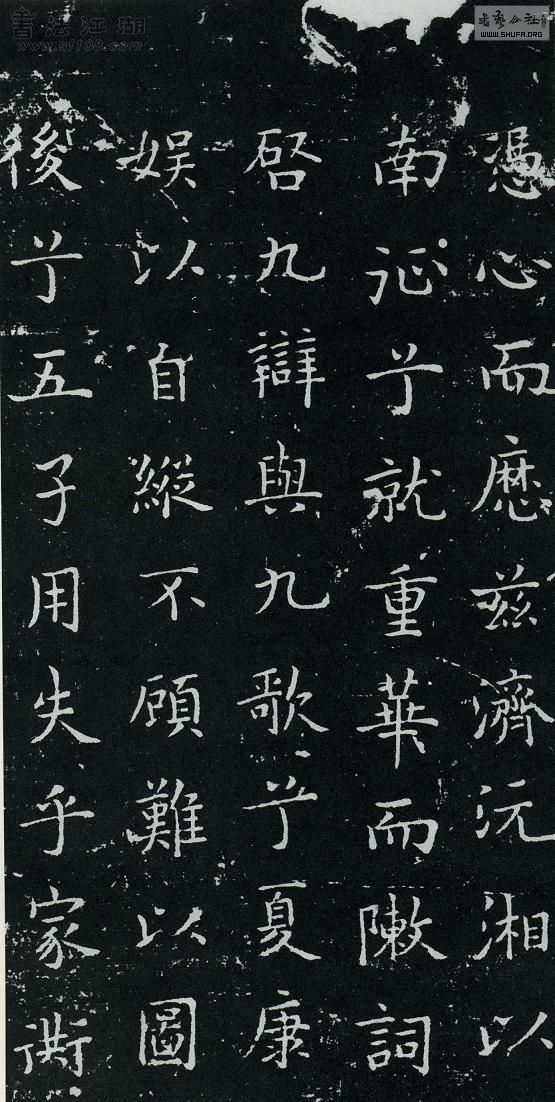 憑心而厯兹濟沅湘以
南征兮就重華而敶詞
啓九辯與九歌兮夏康
娱以自縱不顧難以圖
後兮五子用失乎家衖
書法江湖
www.sf108.com
書藝公社
WWW.SHUFA.ORG